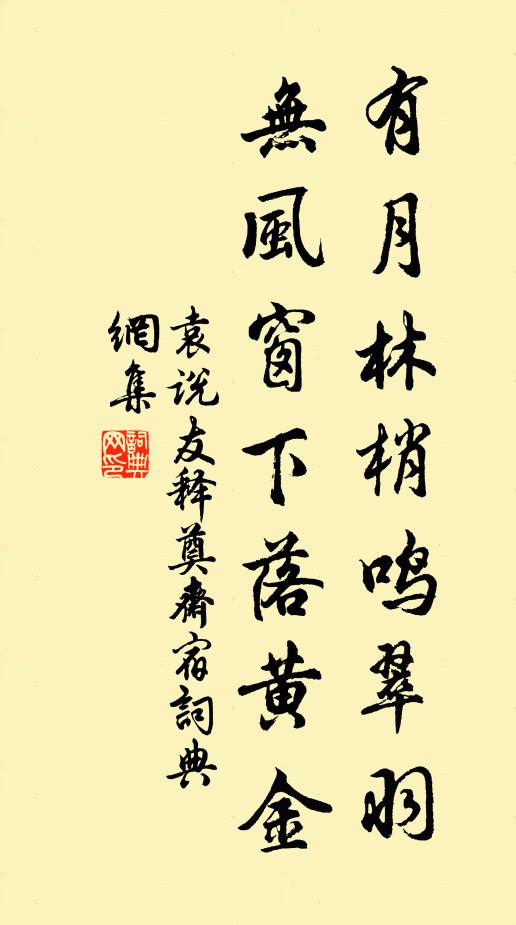 有月林梢鳴翠羽
無風窗下落黃金
袁说友释奠齋宿詞典
網集
詞典
网印